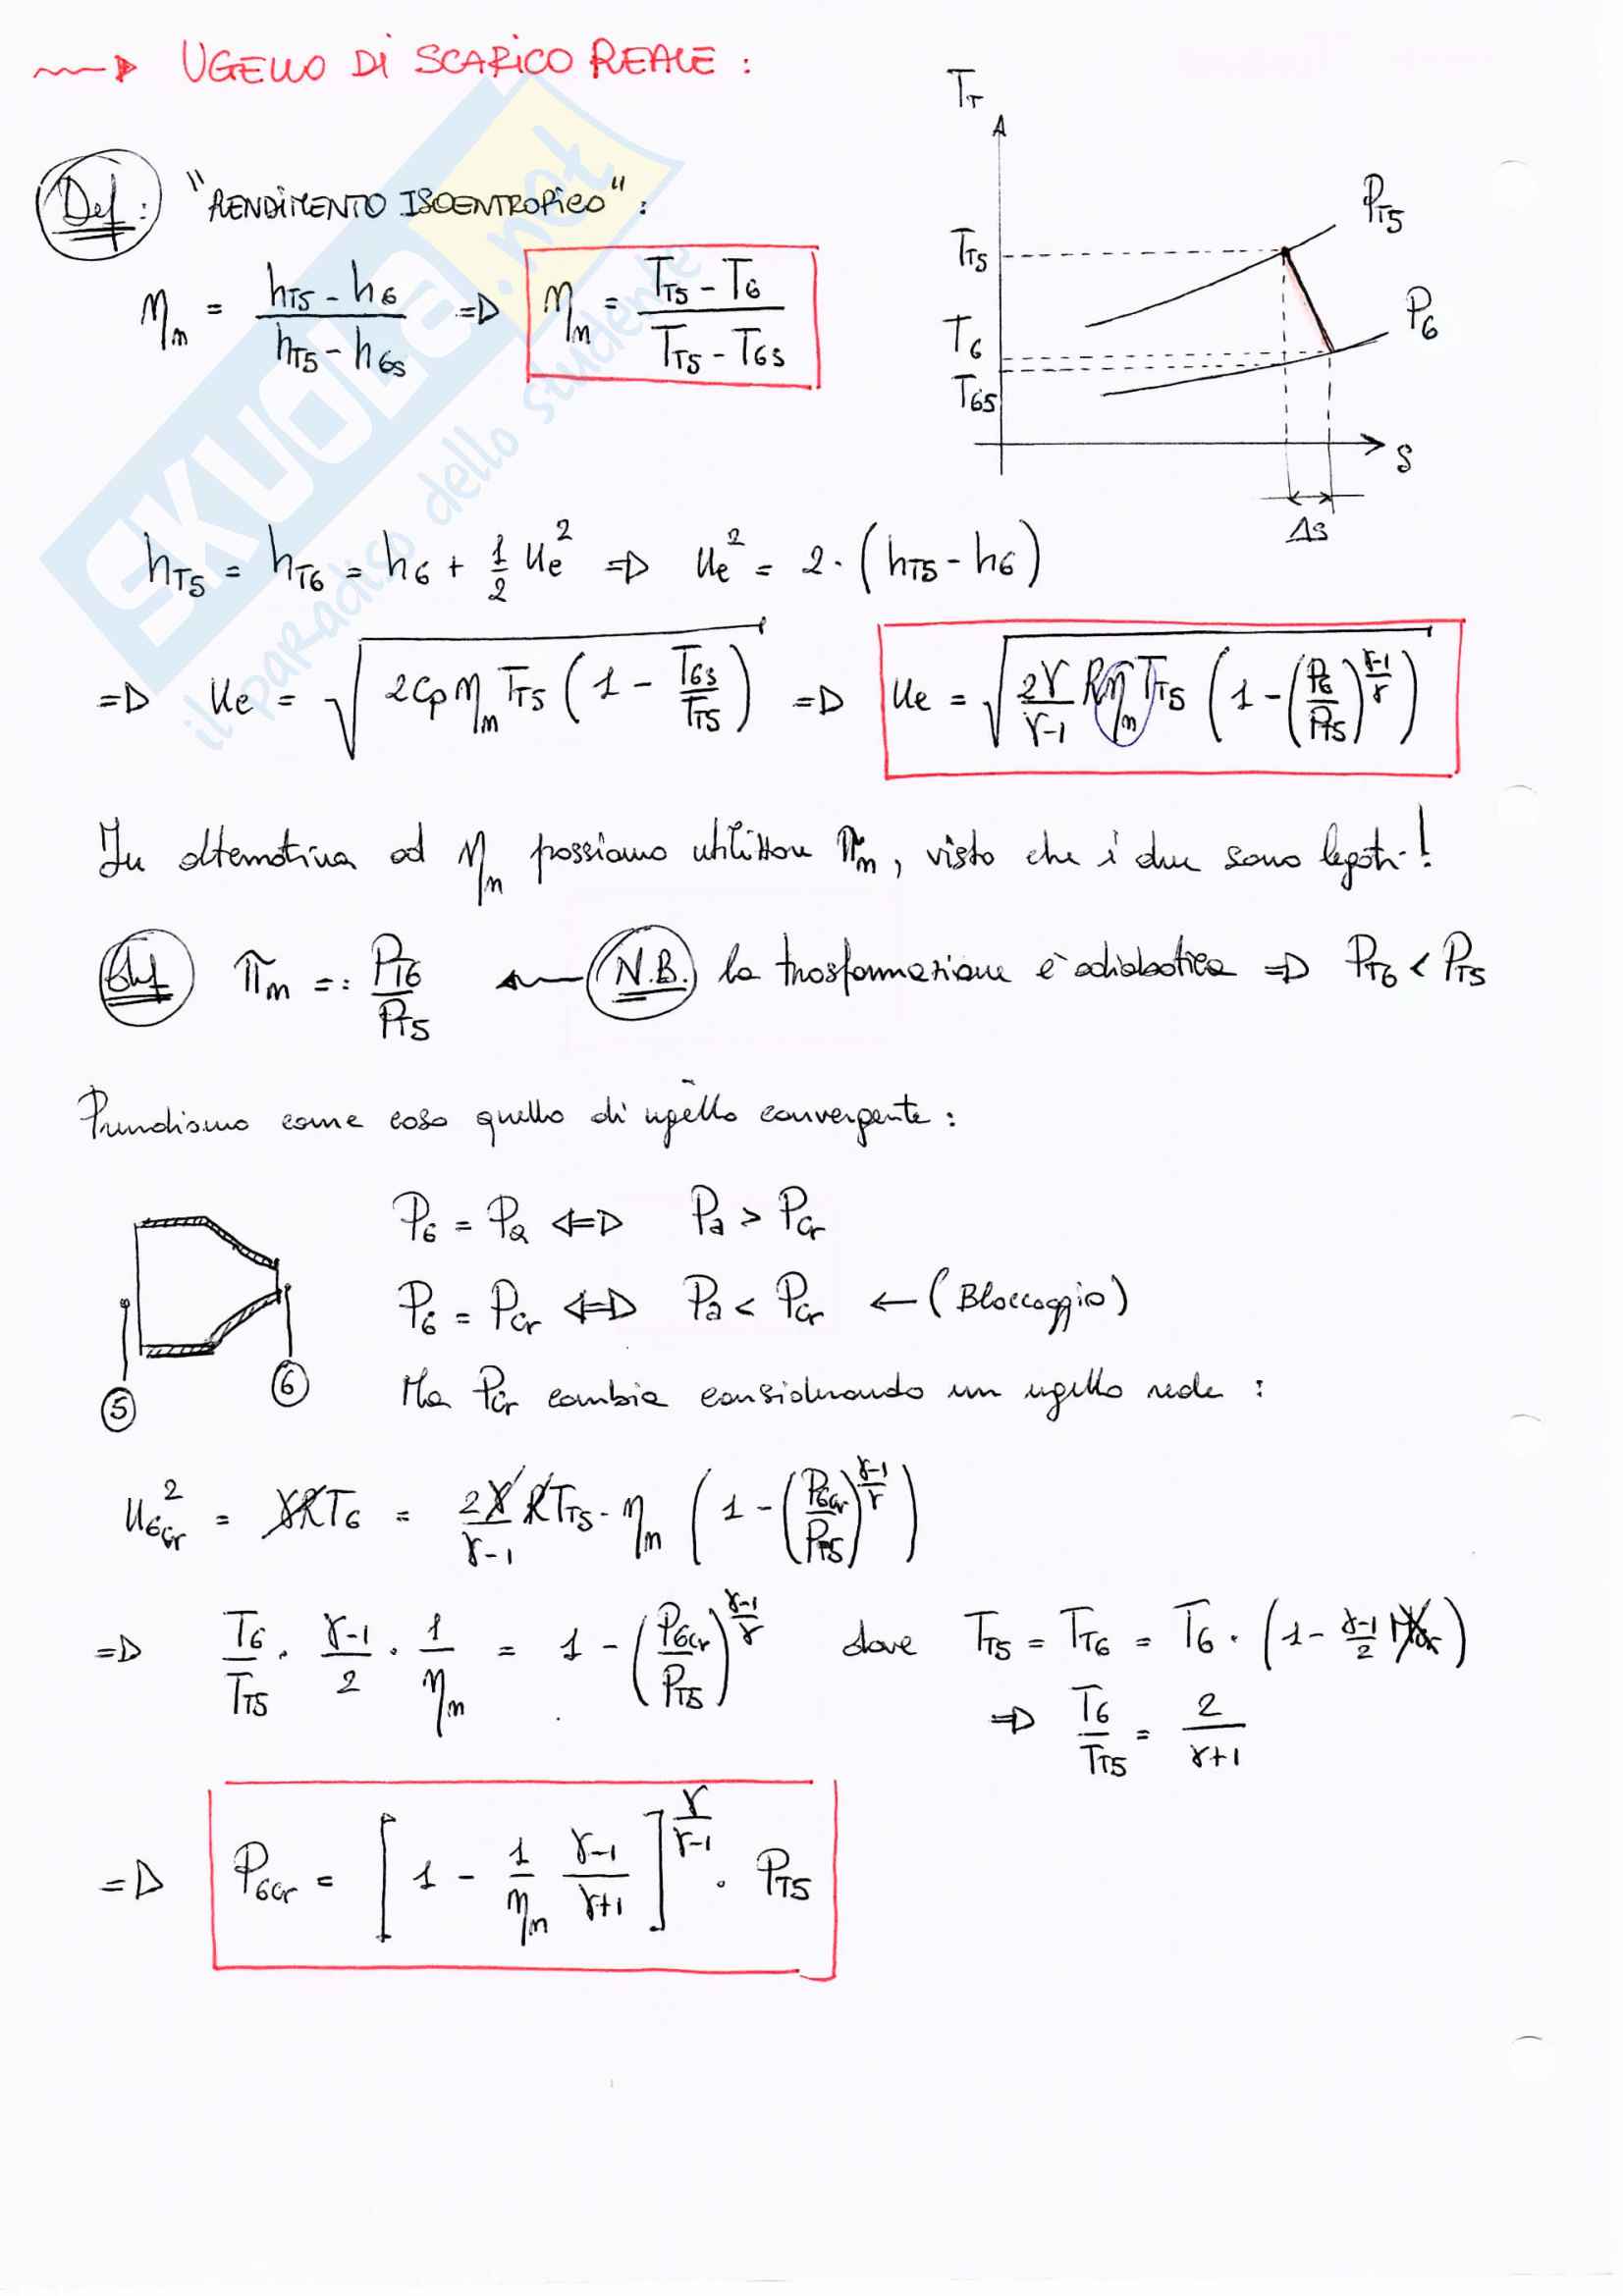 UGELLO DI SCARICO REALE :
Def : "RENDIMENTO ISOENTROPICO" :
η_n = (h_T5 - h_6)/(h_T5 - h_6s) => η_n = (T_T5 - T_6)/(T_T5 - T_6s)
T_T
P_T5
T_T5
P_6
T_6
T_6s
S
ΔS
h_T5 = h_T6 = h_6 + 1/2 u_e^2 => u_e^2 = 2 · (h_T5 - h_6)
=> u_e = √(2 c_p η_n T_T5 (1 - T_6s/T_T5)) => u_e = √(2γ/(γ-1) R η_n T_T5 (1 - (P_6/P_T5)^((γ-1)/γ)))
In alternativa ad η_n possiamo utilizzare π_n, visto che i due sono legati!
Def π_n =: P_T6/P_T5 ← N.B. la trasformazione è adiabatica => P_T6 < P_T5
Prendiamo come caso quello di ugello convergente :
P_6 = P_a <=> P_a > P_cr
P_6 = P_cr <=> P_a < P_cr ← (Bloccaggio)
5
6
Ma P_cr cambia considerando un ugello reale :
u_6cr^2 = γRT_6 = 2γ/(γ-1) RT_T5 · η_n (1 - (P_6cr/P_T5)^((γ-1)/γ))
=> T_6/T_T5 · (γ-1)/2 · 1/η_n = 1 - (P_6cr/P_T5)^((γ-1)/γ) dove T_T5 = T_T6 = T_6 · (1 - (γ-1)/2 M_6cr)
=> T_6/T_T5 = 2/(γ+1)
=> P_6cr = [1 - 1/η_n (γ-1)/(γ+1)]^(γ/(γ-1)) · P_T5
SKUOLA.net
il paradiso dello studente